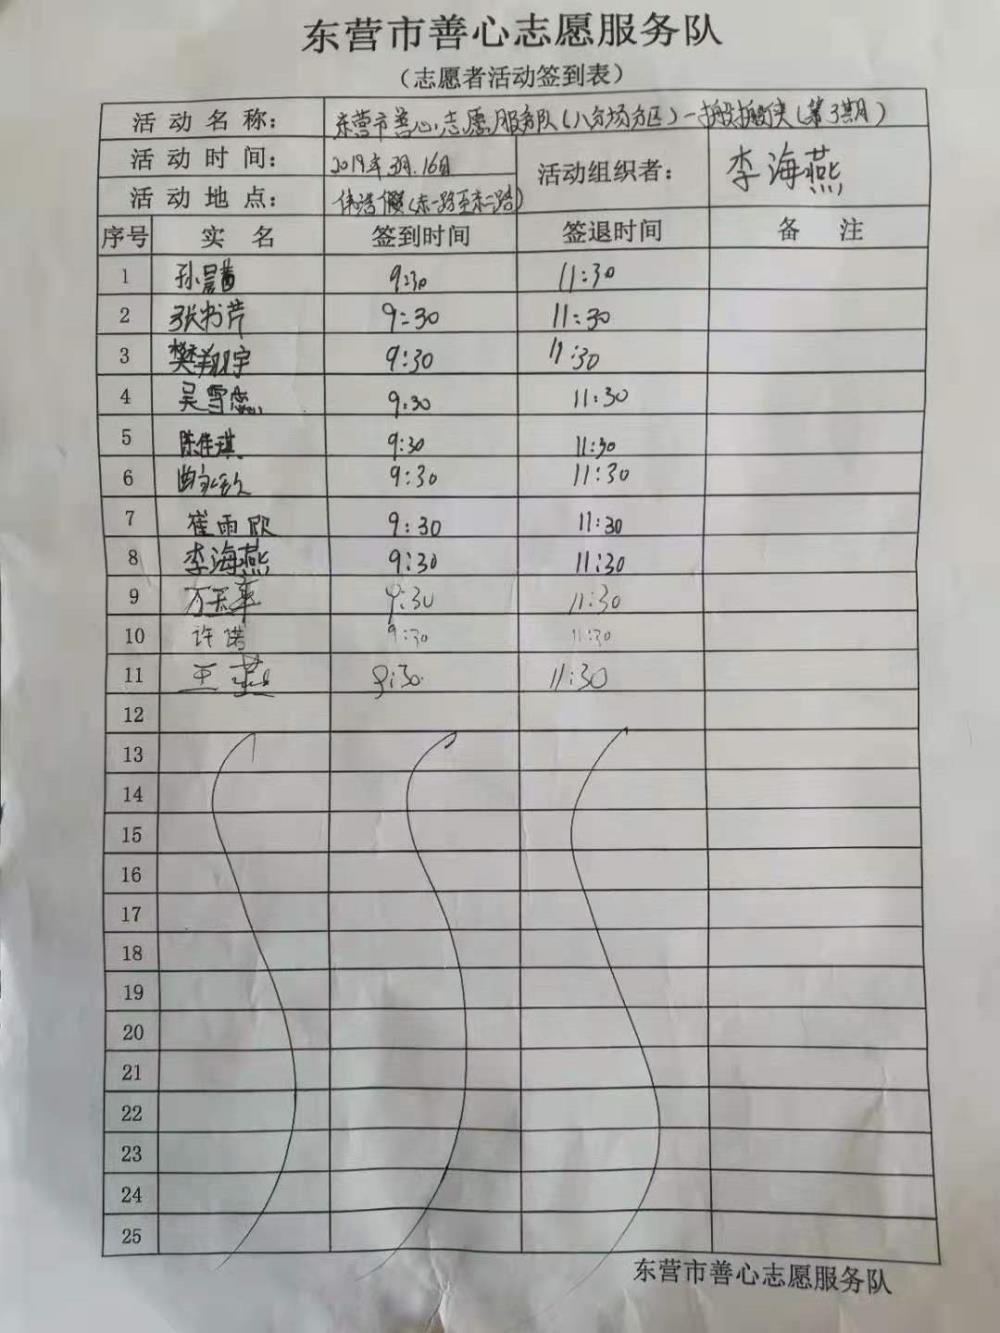 东营市善心志愿服务队
（志愿者活动签到表）
活动名称： 东营市善心志愿服务队（八分场务区）一搬搬侠（第3期）
活动时间： 2019年3月.16日
活动组织者： 李海燕
活动地点： （东一路至东二路）
序号 实名 签到时间 签退时间 备注
1 孙 9:30 11:30
2 张书芹 9:30 11:30
3 樊翔宇 9:30 11:30
4 吴雪 9:30 11:30
5 陈佳琪 9:30 11:30
6 9:30 11:30
7 崔雨欣 9:30 11:30
8 李海燕 9:30 11:30
9 9:30 11:30
10 许诺 9:30 11:30
11 王燕 9:30 11:30
12
13
14
15
16
17
18
19
20
21
22
23
24
25
东营市善心志愿服务队